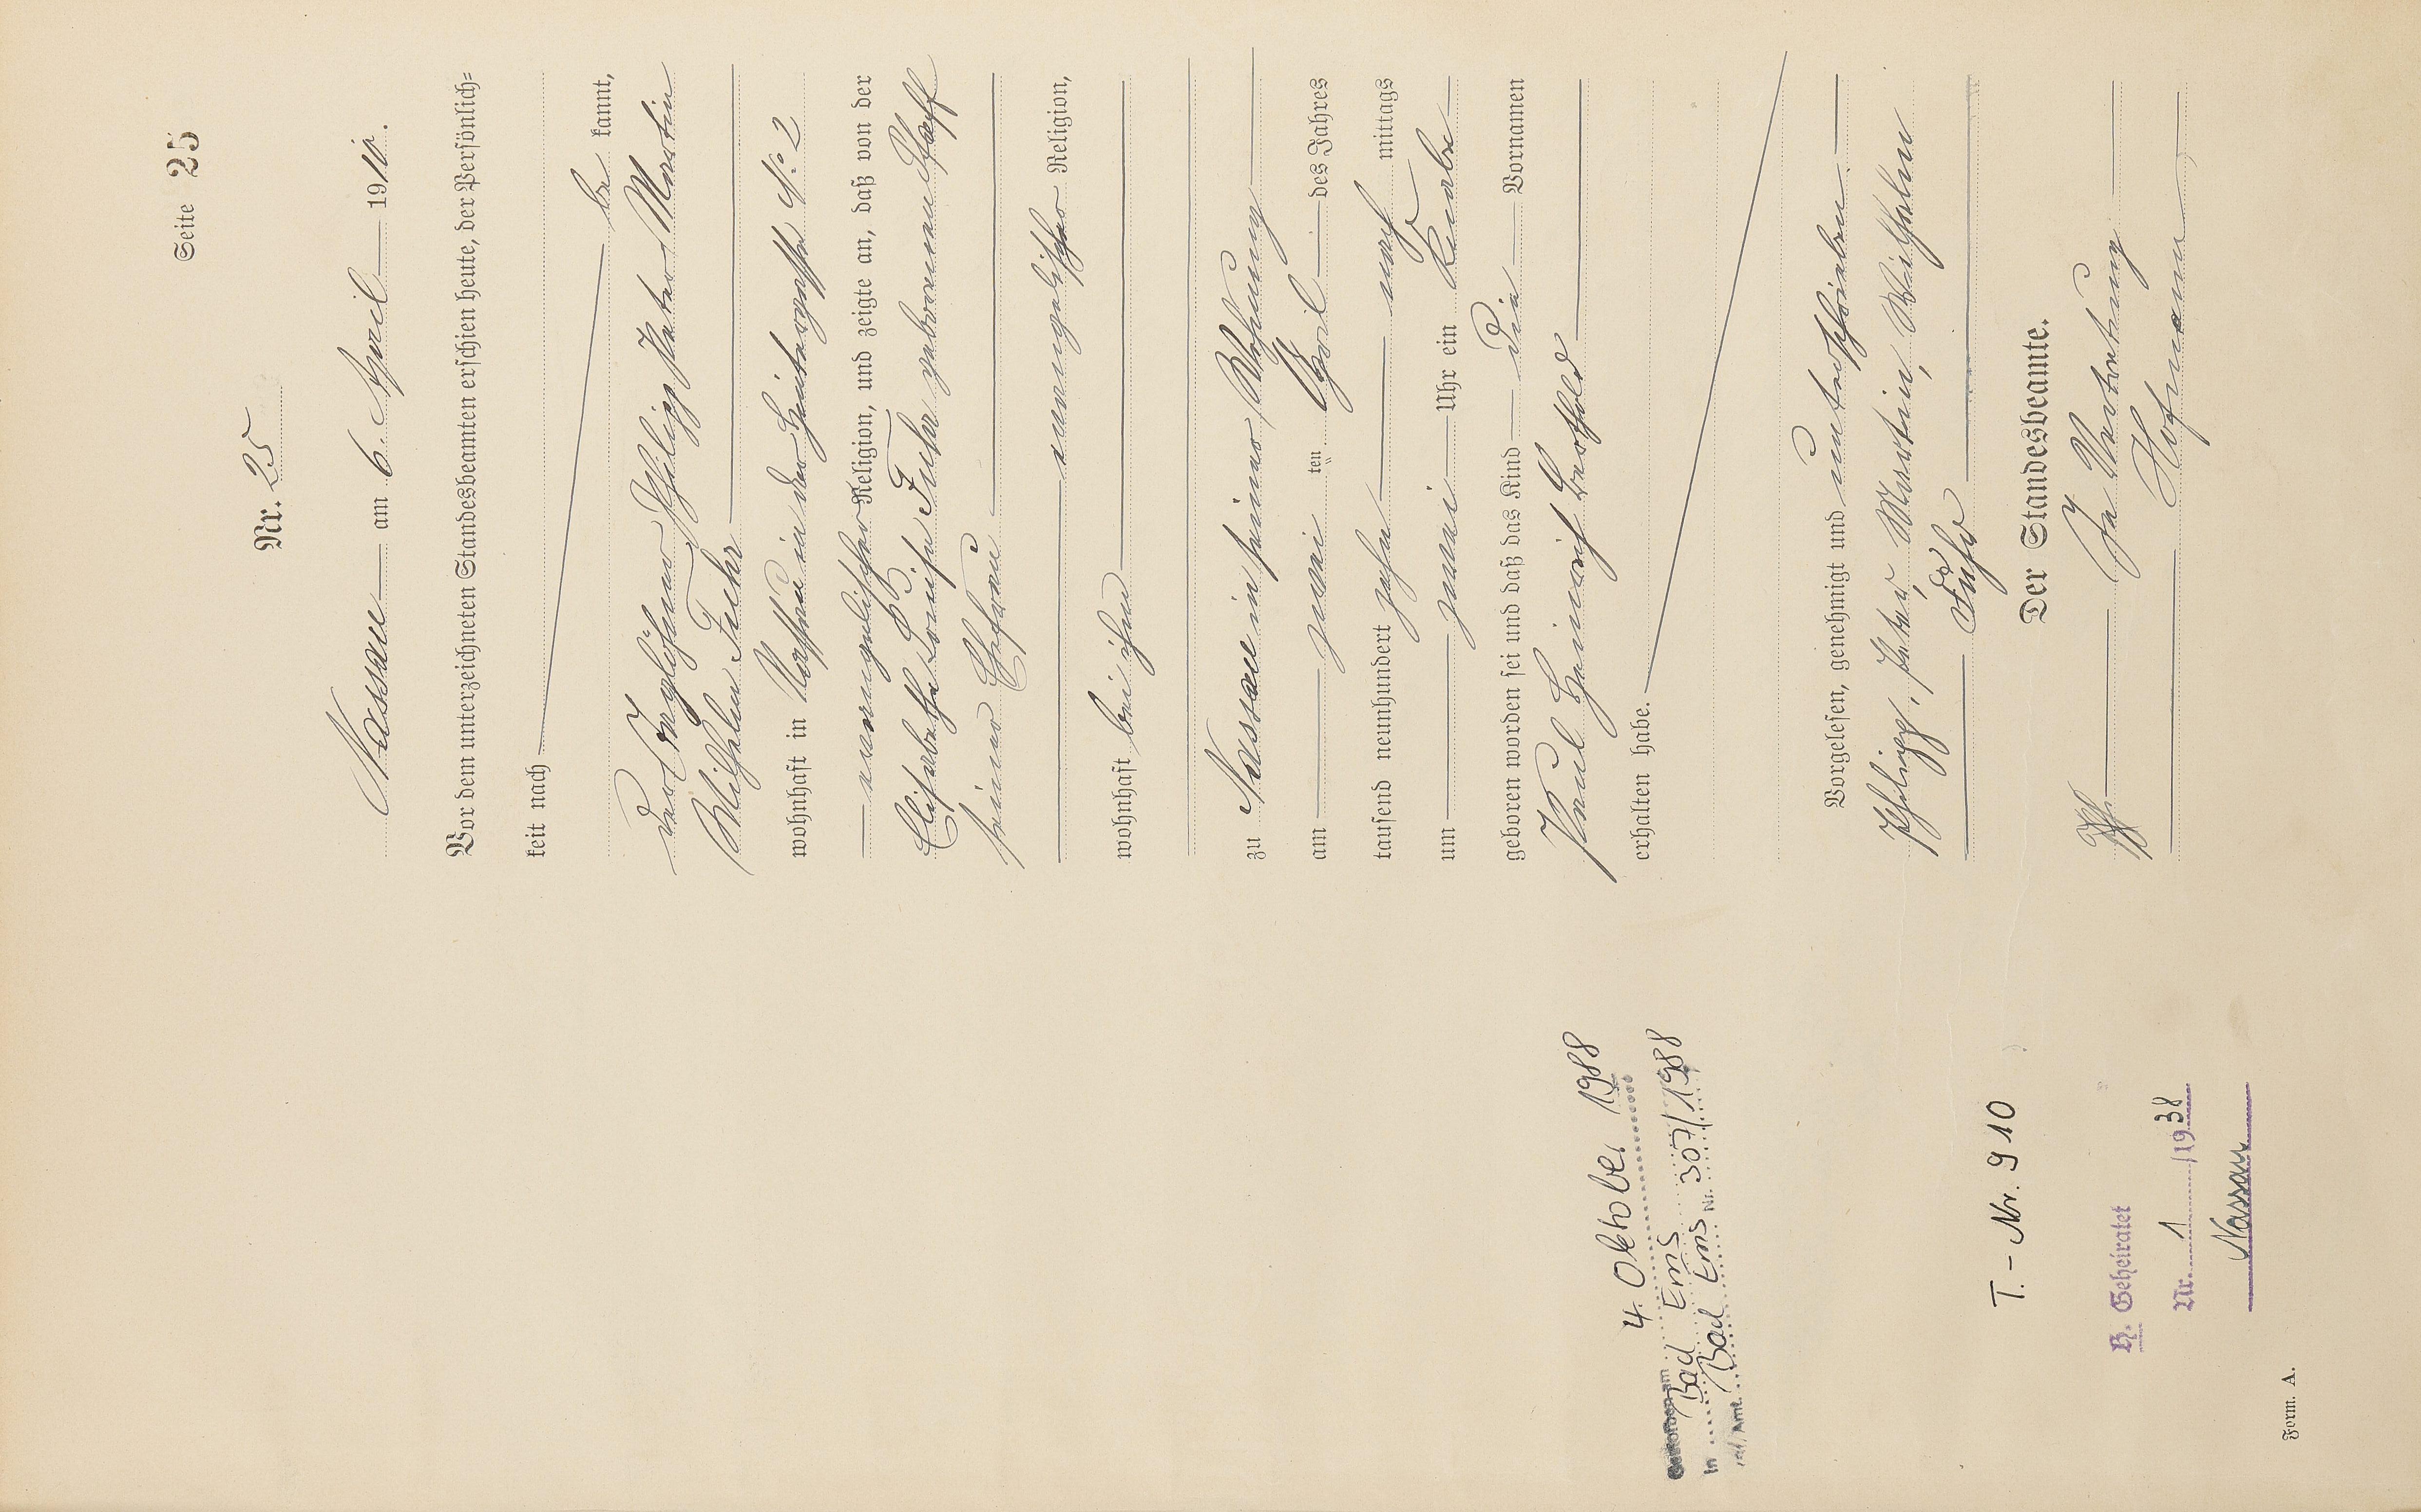 Seite 25
Nr. 25
Nassau am 6. April 1910.
Vor dem unterzeichneten Standesbeamten erschien heute, der Persönlich=
keit nach
be kannt,
der Taglöhner Philipp Peter Martin
Wilhelm Fuhr
wohnhaft in Nassau in der Hintergasse No 2
evangelischer Religion, und zeigte an, daß von der
Elisabethe Louise Fuhr geborenen Pfaff
seiner Ehefrau
evangelischer Religion,
wohnhaft bei ihm
zu Nassau in seiner Wohnung
am zwei ten April des Jahres
tausend neunhundert zehn nach mittags
um zwei Uhr ein Knabe
geboren worden sei und daß das Kind die Vornamen
Paul Heinrich Berthold
erhalten habe.
Vorgelesen, genehmigt und unterschrieben.
Philipp, Peter, Martin, Wilhelm
Fuhr
Der Standesbeamte.
In Vertretung
Hofmann
Gestorben am 4. Oktober 1988
in Bad Ems
Bad Ems Nr. 307/1988
T. - Nr. 910
H. Geheiratet
Nr. 1 /1938
Nassau
Form. A.